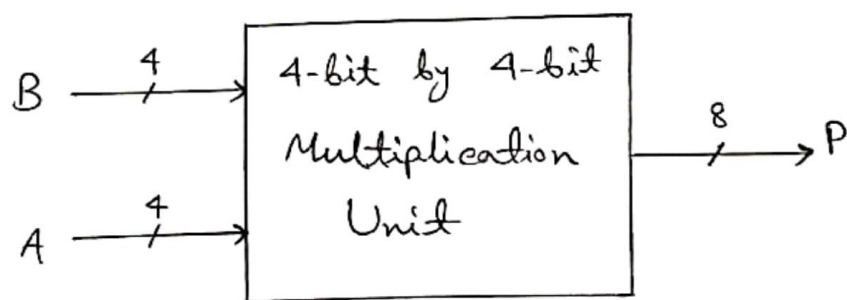 B
4
A
4
4-bit by 4-bit
Multiplication
Unit
8
P